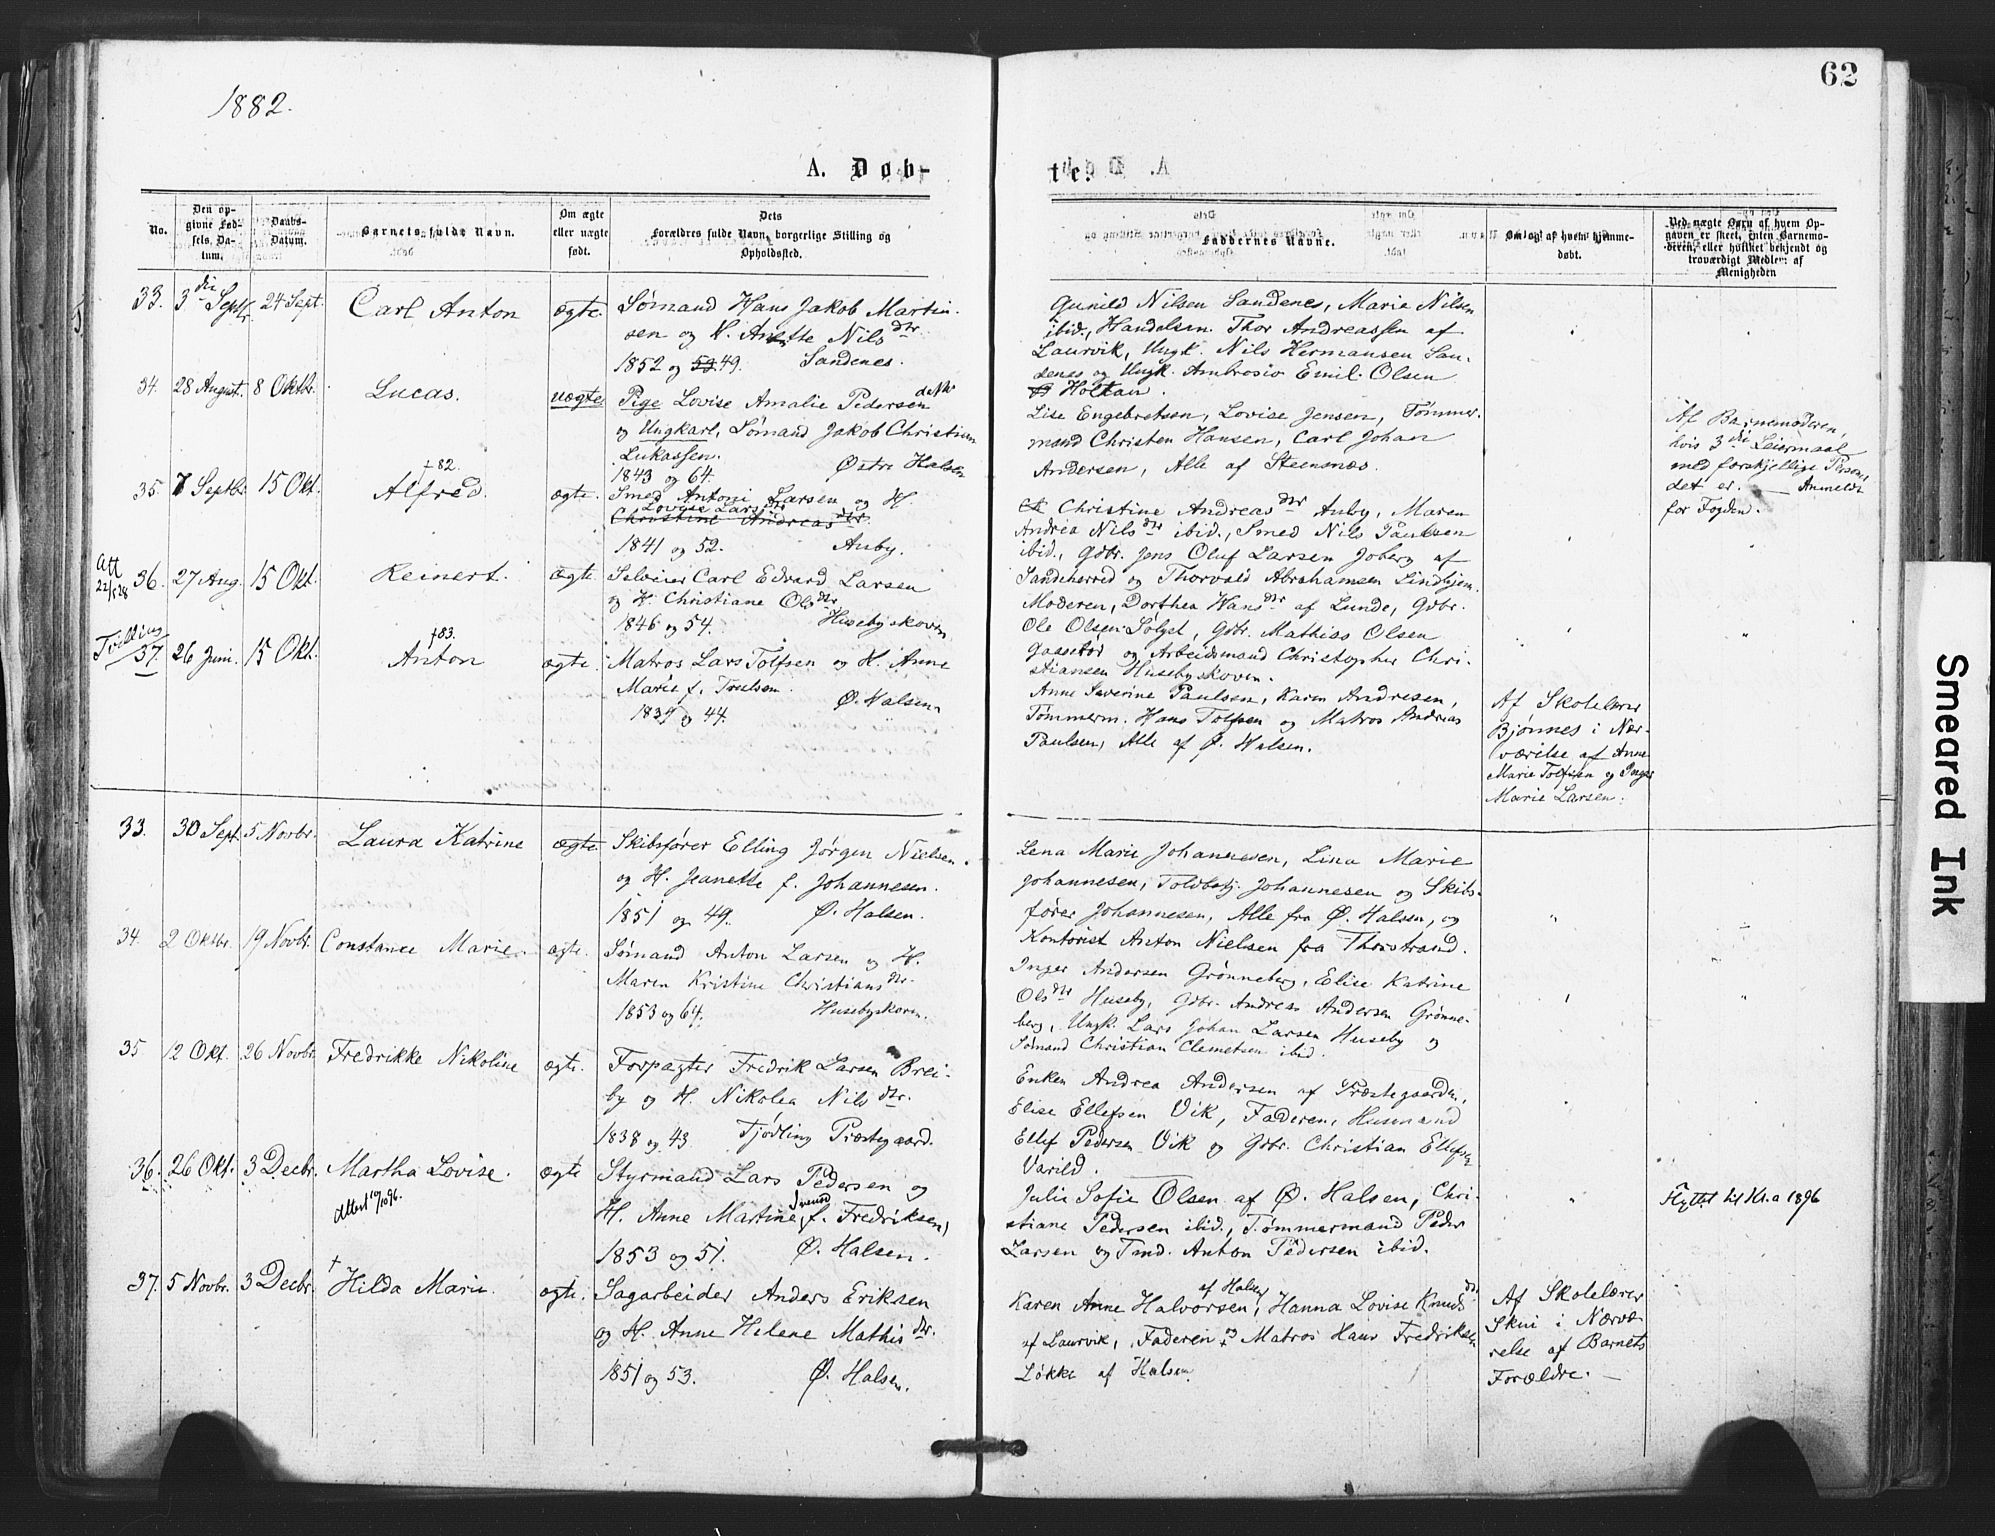 62
1882.
A. Døb-
te.
No.
Den op-
givne Fød-
sels-Da-
tum.
Daabs-
Datum.
Barnets fulde Navn.
Om ægte
eller uægte
født.
Dets
Forældres fulde Navn, borgerlige Stilling og
Opholdssted.
Faddernes Navne.
Om og af hvem hjemme-
døbt.
Ved uægte Børn af hvem Op-
gaven er skeet, enten Barnemo-
deren, eller hvilket bekjendt og
troværdigt Medlem af
Menigheden
33. 3die Septbr. 24 Sept. Carl Anton ægte.
Sømand Hans Jakob Martin-
sen og H. Anette Nilsdtr.
1852 og 49. Sandenes.
Gunild Nilsen Sandenes, Maria Nilsen
ibid., Handelsm. Thor Andreassen af
Laurvik, Ungk. Nils Hermansen San-
denes og Ungk. Ambrosio Emil Olsen
Holtan.
34. 28 August. 8 Oktbr. Lucas. uægte
Pige Lovise Amalie Pedersen
og Ungkarl, Sømand Jakob Christian
Lukassen.
1843 og 64. Østre Halsen
Lise Engebretsen, Lovise Jensen, Tømmer-
mand Christen Hansen, Carl Johan
Andersen, Alle af Steensnæs.
Af Barnemoderen,
hvis 3die Leiermaal
med forskjellige Person
det er. — Anmeldt
for Fogden.
35. 7 Septbr. 15 Okt. †82. Alfred. ægte.
Smed Antoni Larsen og H.
Lovise Larsdtr
Christine Andreasdtr.
1841 og 52. Auby.
Christine Andreasdtr Auby, Maren
Andrea Nilsdtr ibid., Smed Nils Paulsen
ibid., Gdbr. Jens Oluf Larsen Joberg af
Sandeherred og Thorvald Abrahamsen Lindhjem.
Att
22/5 28
36. 27 Aug. 15 Okt. Reinert. ægte
Selveier Carl Edvard Larsen
og H. Christiane Olsdtr
1846 og 54. Husebyskoven
Moderen, Dorthea Hansdtr af Lunde, Gdbr.
Ole Olsen Sølyst, Gdbr. Mathias Olsen
Gassebod og Arbeidsmand Christopher Chri-
stiansen Husebyskoven.
Tvilling
37. 26 Juni. 15 Okt. †83. Anton ægte
Matros Lars Tolfsen og H. Anne
Marie f. Truelsen.
1839 og 44. Ø. Halsen
Anne Severine Paulsen, Karen Andresen,
Tømmerm. Hans Tolfsen og Matros Andreas
Paulsen, Alle af Ø. Halsen.
Af Skolelærer
Bjønnes i Nær-
værelse af Anne
Marie Tolfsen og Inger
Marie Larsen.
33. 30 Sept. 5 Novbr. Laura Katrine ægte.
Skibsfører Elling Jørgen Nielsen.
og H. Jeanette f. Johannesen.
1851 og 49. Ø. Halsen.
Lena Marie Johannesen, Lina Marie
Johannesen, Toldbetj. Johannesen og Skibs-
fører Johannesen, Alle fra Ø. Halsen, og
Kontorist Anton Nielsen fra Thorstrand.
34. 2 Oktbr. 19 Novbr. Constance Marie. ægte.
Sømand Anton Larsen og H.
Maren Kristine Christiansdtr.
1853 og 64. Husebyskoven.
Inger Andersen Grønneberg, Elise Katrine
Olsdtr Huseby, Gdbr. Andreas Andersen Grønne-
berg, Ungk. Lars Johan Larsen Huseby og
Sømand Christian Clemetsen ibid.
35 12 Okt. 26 Novbr. Fredrikke Nikoline ægte.
Forpagter Fredrik Larsen Brei-
by og H. Nikolea Nilsdtr.
1838 og 43 Tjødling Præstegaard.
Enken Andrea Andersen af Præstegaarden,
Elise Ellefsen Vik, Faderen, Husmand
Ellef Pedersen Vik og Gdbr. Christian Ellefsen
Varild.
36. 26 Okt. 3 Decbr. Martha Lovise. ægte
Attest 10/10 96.
Styrmand Lars Pedersen og
H. Anne Martine f. Fredriksen,
1853 og 51. Ø. Halsen.
Julie Sofie Olsen af Ø. Halsen, Chri-
stiane Pedersen ibid., Tømmermand Peder
Larsen og Tmd. Anton Pedersen ibid.
Flyttet til Kr.a 1896
37. 5 Novbr. 3 Decbr. † Hilda Marie. ægte.
Sagarbeider Anders Eriksen
og H. Anne Helene Mathisdtr.
1851 og 53. Ø. Halsen.
af Halsen
Karen Anne Halvorsen, Hanna Lovise Knudsdtr
af Laurvik, Faderen og Matros Hans Fredriksen
Løkke af Halsen.
Af Skolelærer
Skui i Nærvæ-
relse af Barnets
Forældre. —
Smeared Ink